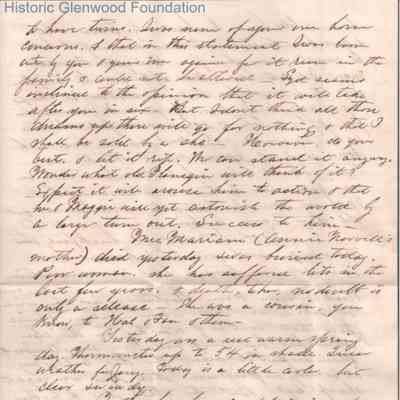 Historic Glenwood Foundation
to have turns. I was none of your one horse
concerns. & that in this statement I was born
out by you & yours too again for it runs in the
family & could not be altered - Syd seems
inclined to the opinion that it will take
after you in six - But I don't think all those
dreams up there will go for nothing & that I
shall be sold by a she - However do your
best. & let it rip. We can stand it anyway.
Wonder what old Flanegin will think of it?
Expect it will arouse him to action & that
he & Maggie will yet astonish the world by
a large turn out. Success to him -
Mrs Mariam (Connie Norvell's
mother) died yesterday & was buried today.
Poor woman. she has suffered lots in the
last few years. & death, to her, no doubt is
only a release - She was a cousin, you
know, to Hal & Fan &
Yesterday was a real warm spring
day. Thermometer up to 54 in shade.
weather for Jany. Today is a little cooler but
clear & windy.